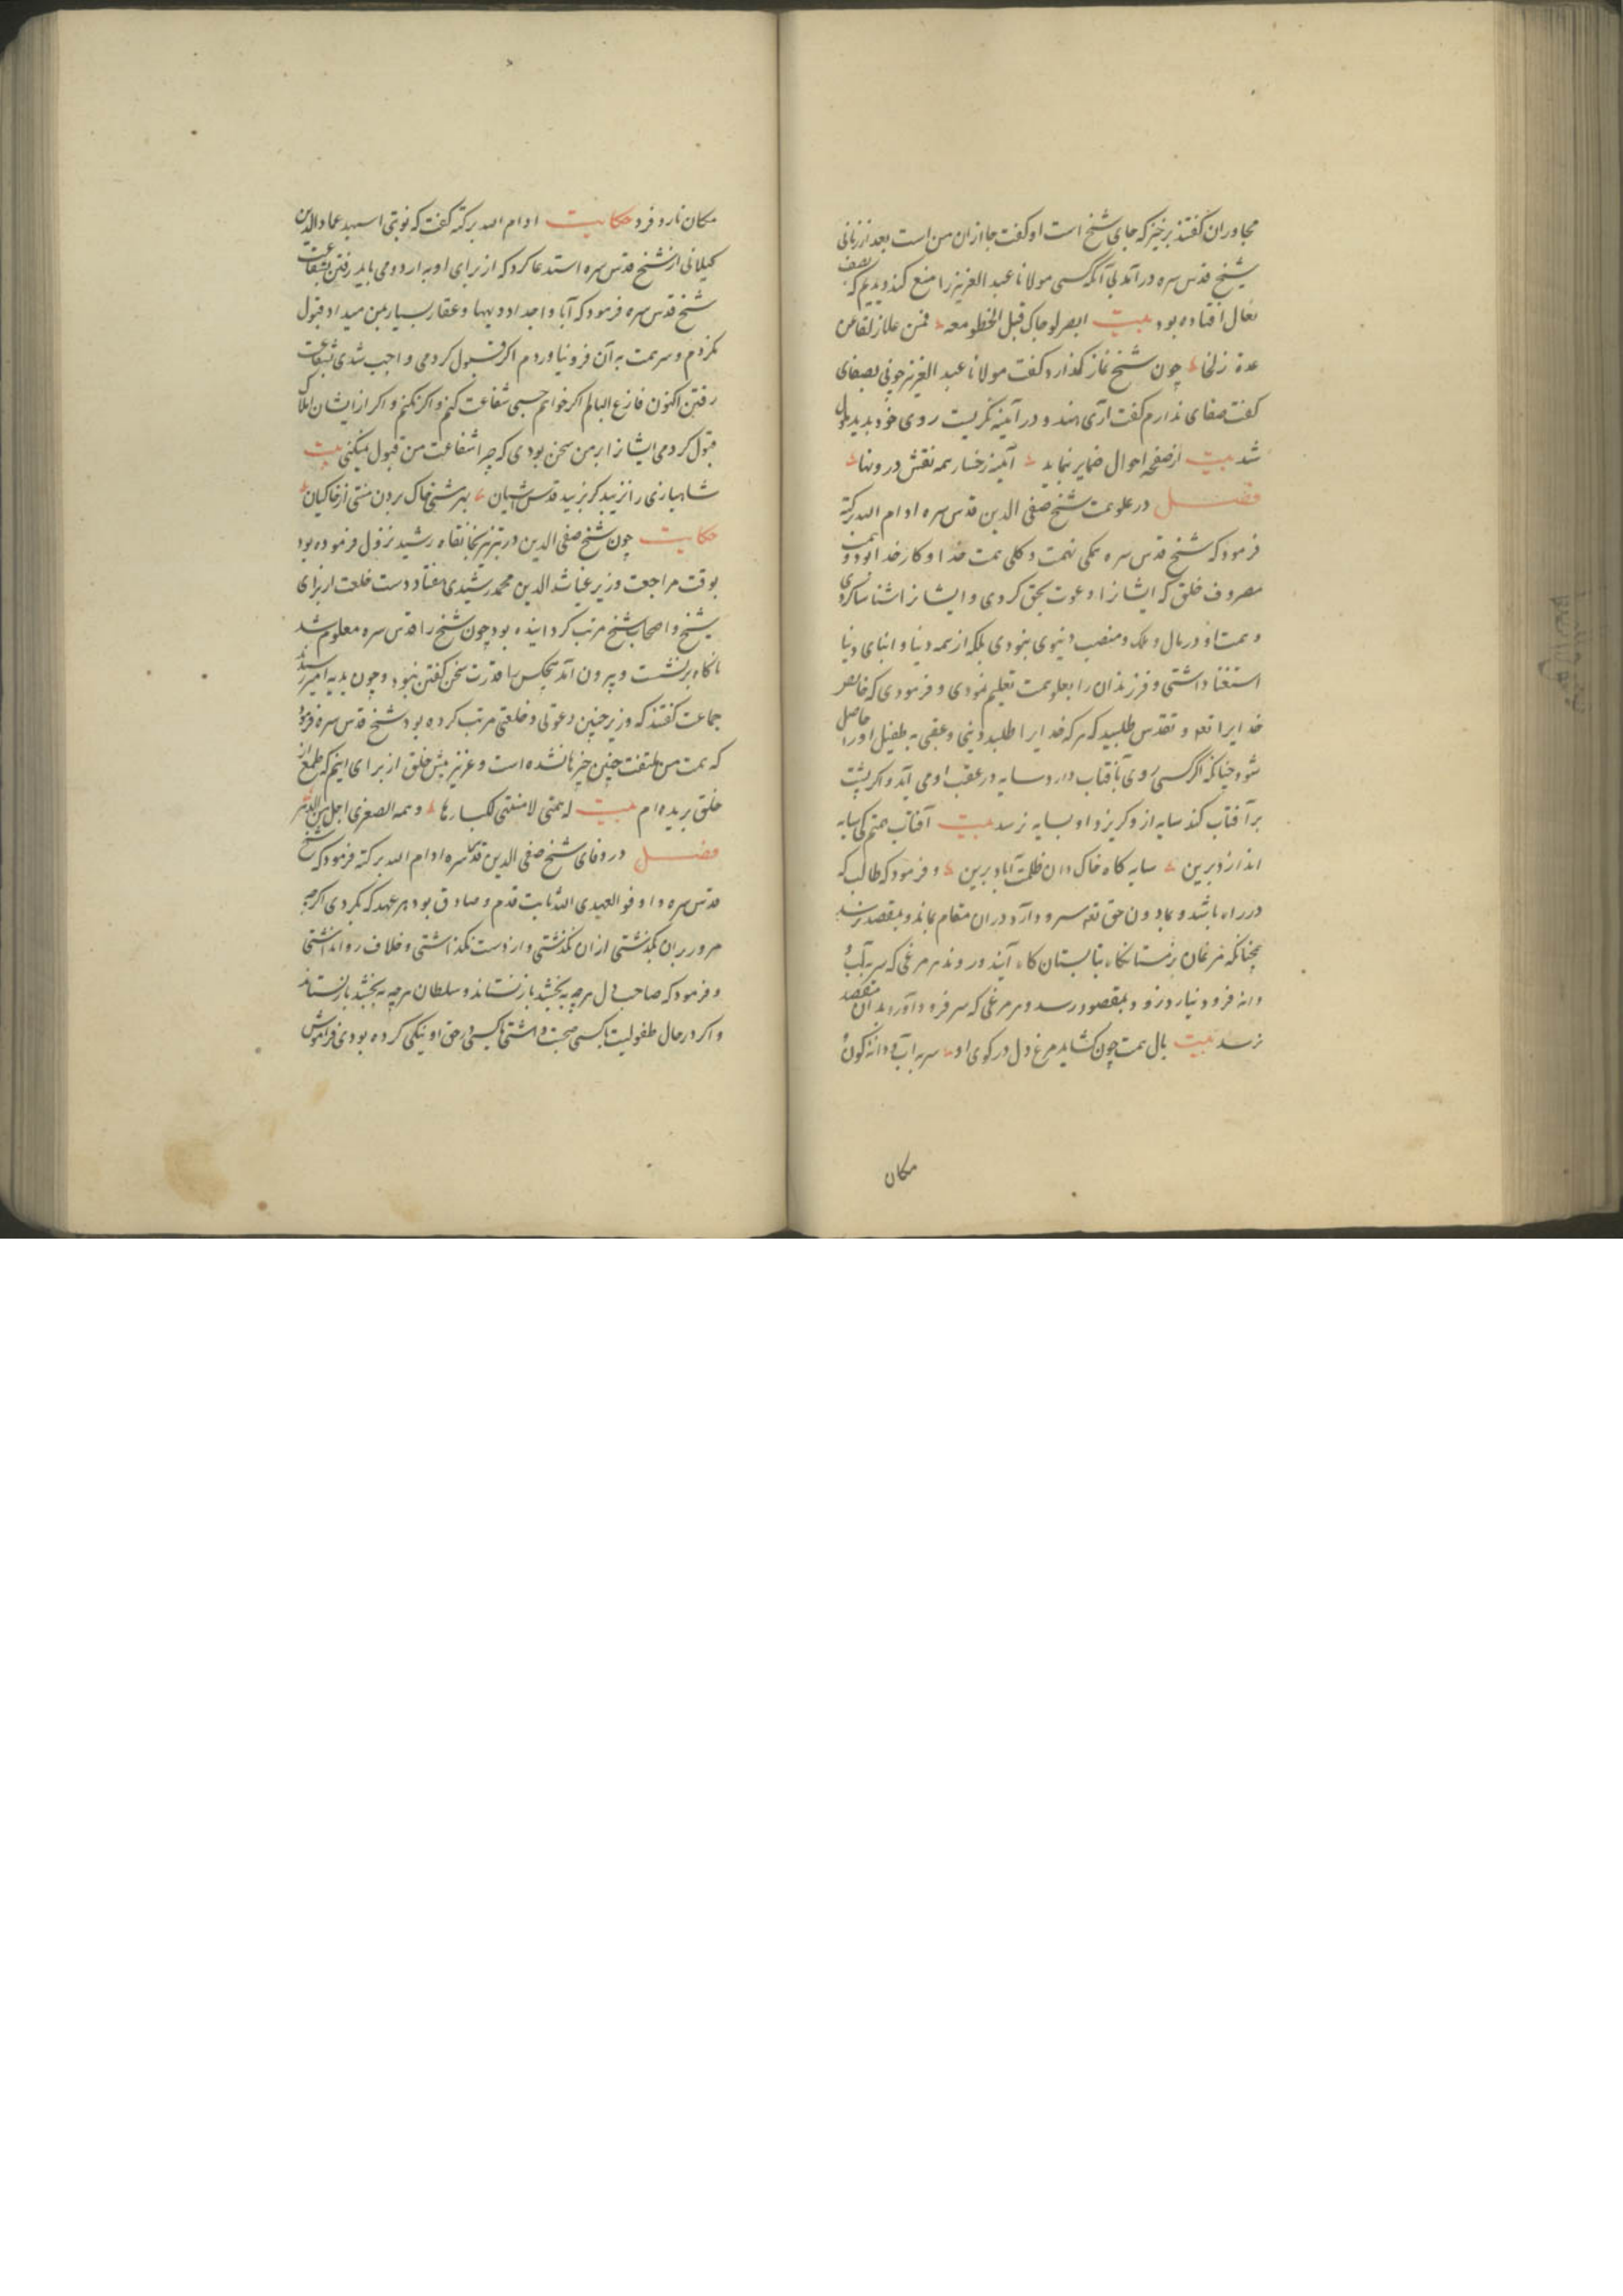 مجاوران کفتند برخیز که جای شیخ است او کفت جا ازان من است بعد از زمانی
شیخ قدس سره درآمد بی آنکه کسی مولانا عبد العزیز را منع کند دیدیم که بصف
نعال افتاده بود بیت ابصر لوجاک قبل الخطو معه
عدة زلخا چون شیخ نماز بکذارد کفت مولانا عبد العزیز چونی بصفای
کفت صفای ندارم کفت آری هندو در آینه نکریست روی خود بدید ملول
شد بیت از صفحه احوال ضمایر نماید آینه رخسار همه نقش درونها
فصل در علو همت شیخ صفی الدین قدس سره ادام الله برکته
فرمود که شیخ قدس سره همکی نهمت و کلی همت خدا و کار خدا بود و همت
مصروف خلق که ایشانرا دعوت بحق کردی و ایشانرا شناسا کردی
و همت او در مال و ملک و منصب دنیوی نبودی بلکه از همه دنیا و ابنای دنیا
استغنا داشتی و فرزندان را بعلو همت تعلیم نمودی و فرمودی که خاص
خدایرا تعه و تقدس طلبید که هر که خدایرا طلبد دنیی و عقبی به طفیل او را حاصل
شود چنانکه اکر کسی روی بآفتاب دارد سایه در عقب او می آید و اکر پشت
برآفتاب کند سایه از و کریزد او بسایه نرسد بیت آفتاب همتم کی سایه
اندازد برین سایه کاه خاک دان ظلمت آباد برین و فرمود که طالب که
در راه باشد و بمادون حق تعه سر و دآرد دران مقام بماند و بمقصد نرسد
همچنانکه مرغان زمستانکاه بتابستان کاه آیند و روند هر مرغی که سر بآب و
دانه فرود نیارد زود بمقصود رسد و هر مرغی که سر فرود آورد بدان مقصد
نرسد بیت بال همت چون کشاید مرغ دل در کوی او سر به آب و دانه کون و
مکان
مکان نارد فرو حکایت ادام الله برکته کفت که نوبتی اسپهبد عماد الدین
کیلانی از شیخ قدس سره استدعا کرد که از برای او به اردو می باید رفتن بشفاعت
شیخ قدس سره فرمود که آبا و اجداد او دیهها و عقار بسیار بمن میداد قبول
نکردم و سر همت به آن فرو نیاوردم اکر قبول کردمی واجب شدی بشفاعت
رفتن اکنون فارغ البالم اکر خواهم حسبی شفاعت کنم و اکر نکنم و اکر از ایشان املاک
قبول کردمی ایشانرا بر من سخن بودی که چرا شفاعت من قبول نمیکنی بیت
شاهبازی را نزیبد کز بزیبد قدس آشیان بهر مشتی خاک بردن منتی از خاکیان
حکایت چون شیخ صفی الدین در تبریز بخانقاه رشید نزول فرموده بود
بوقت مراجعت وزیر غیاث الدین محمد رشیدی هفتاد دست خلعت از برای
شیخ و اصحاب شیخ مرتب کردانیده بود چون شیخ را قدس سره معلوم شد
ناکاه برنشست و بیرون آمد هیچکس را قدرت سخن کفتن نبود و چون بدیه امیر رسیدند
جماعت کفتند که وزیر چنین دعوتی و خلعتی مرتب کرده بود شیخ قدس سره فرمود
که همت من ملتفت چنین چیزها نشده است و عزیز پیش خلق از برای اینم که طمع از
خلق بریده ام بیت له همتی لا منتهی لکبارها و همه الصغری اجل من الدهر
فصل در وفای شیخ صفی الدین قدس سره ادام الله برکته فرمود که شیخ
قدس سره و اوفوا بعهدی الله ثابت قدم و صادق بود هر عهد که بکردی اکر چه
مرور بران بکذشتی از ان نکذشتی و از دست نکذاشتی و خلاف روا نداشتی
و فرمود که صاحب دل هرچه به بخشد بازنستاند و سلطان هرچه به بخشد بازنستاند
و اکر در حال طفولیت با کسی صحبت داشتی یا کسی در حق او نیکی کرده بودی فراموش